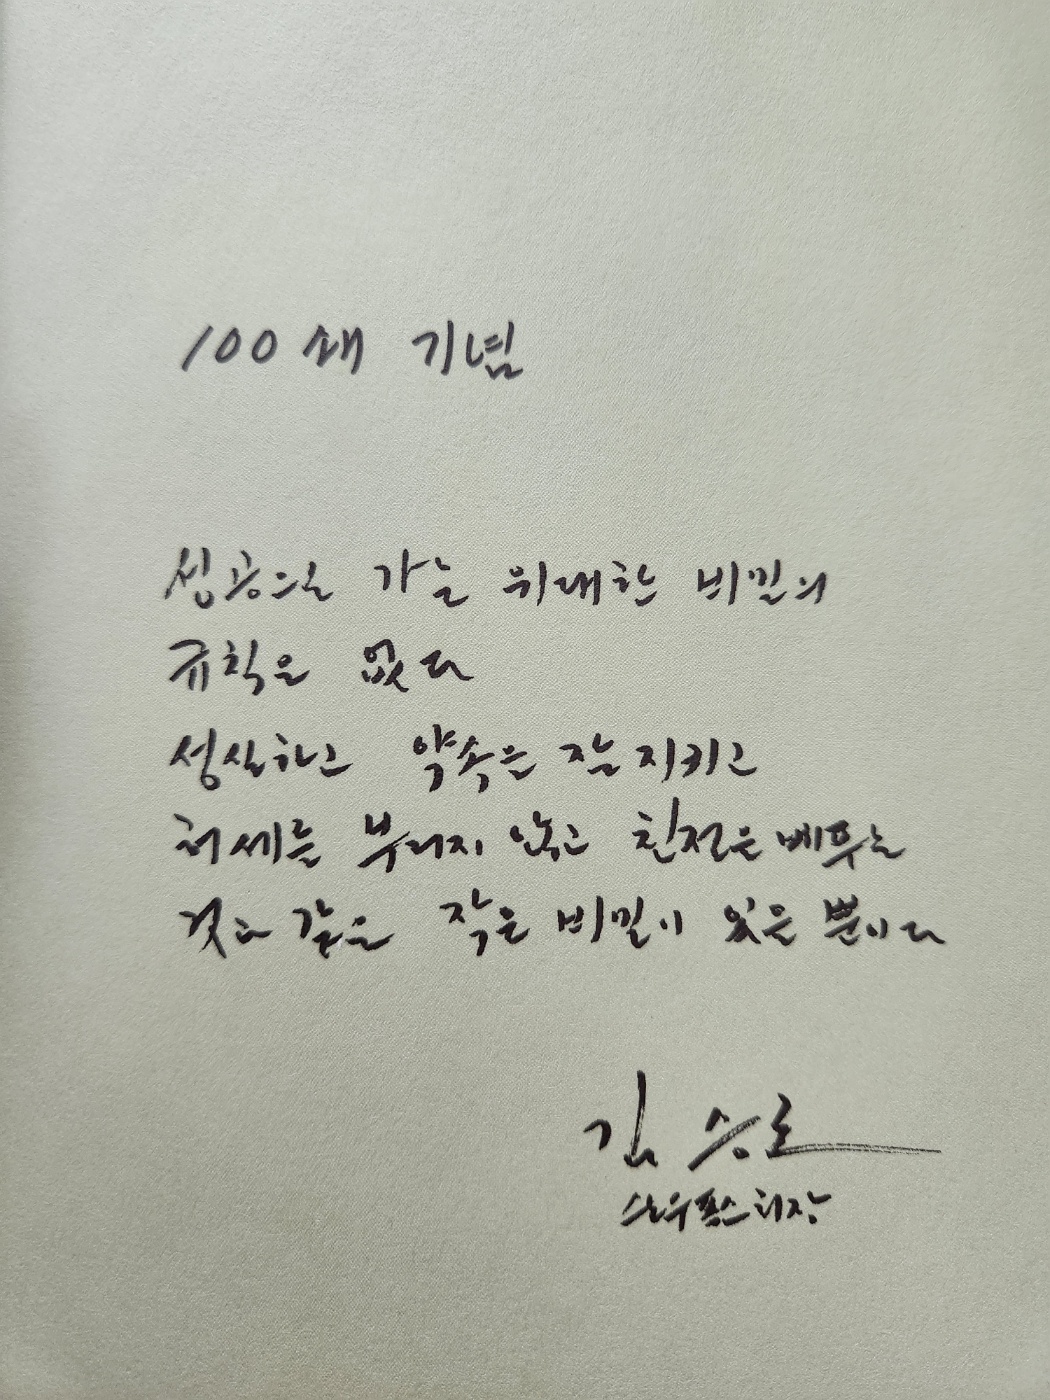 100쇄 기념
성공으로 가는 위대한 비밀의
규칙은 없다
성실하고 약속은 잘 지키고
허세를 부리지 않고 친절을 베푸는
것과 같은 작은 비밀이 있을 뿐이다
김승호
스노우폭스 회장